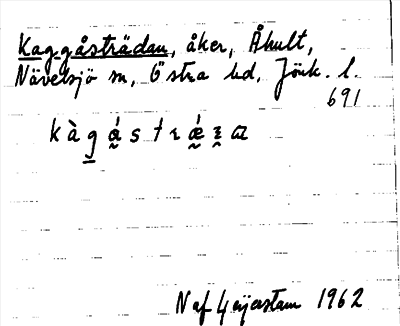 Kaggåsträdan, åker, Åhult,
Nävelsjö sn, Östra hd, Jönk. l.
691
N af Geijerstam 1962